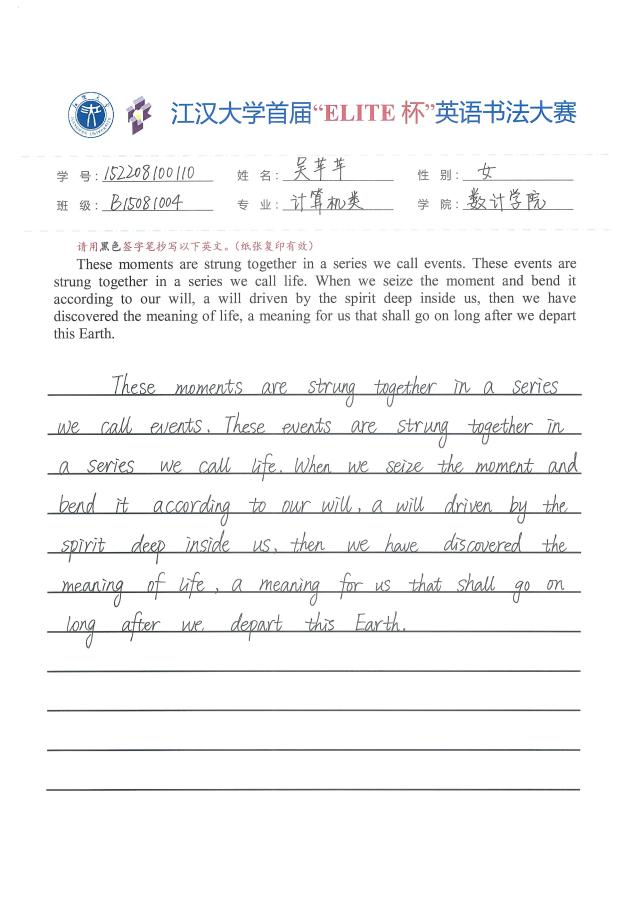 江汉大学首届“ELITE 杯”英语书法大赛
学 号：152208100110 姓 名：吴芊芊 性 别：女
班 级：B15081004 专 业：计算机类 学 院：数计学院
请用黑色签字笔抄写以下英文。（纸张复印有效）
These moments are strung together in a series we call events. These events are
strung together in a series we call life. When we seize the moment and bend it
according to our will, a will driven by the spirit deep inside us, then we have
discovered the meaning of life, a meaning for us that shall go on long after we depart
this Earth.
These moments are strung together in a series
we call events. These events are strung together in
a series we call life. When we seize the moment and
bend it according to our will, a will driven by the
spirit deep inside us, then we have discovered the
meaning of life, a meaning for us that shall go on
long after we depart this Earth.